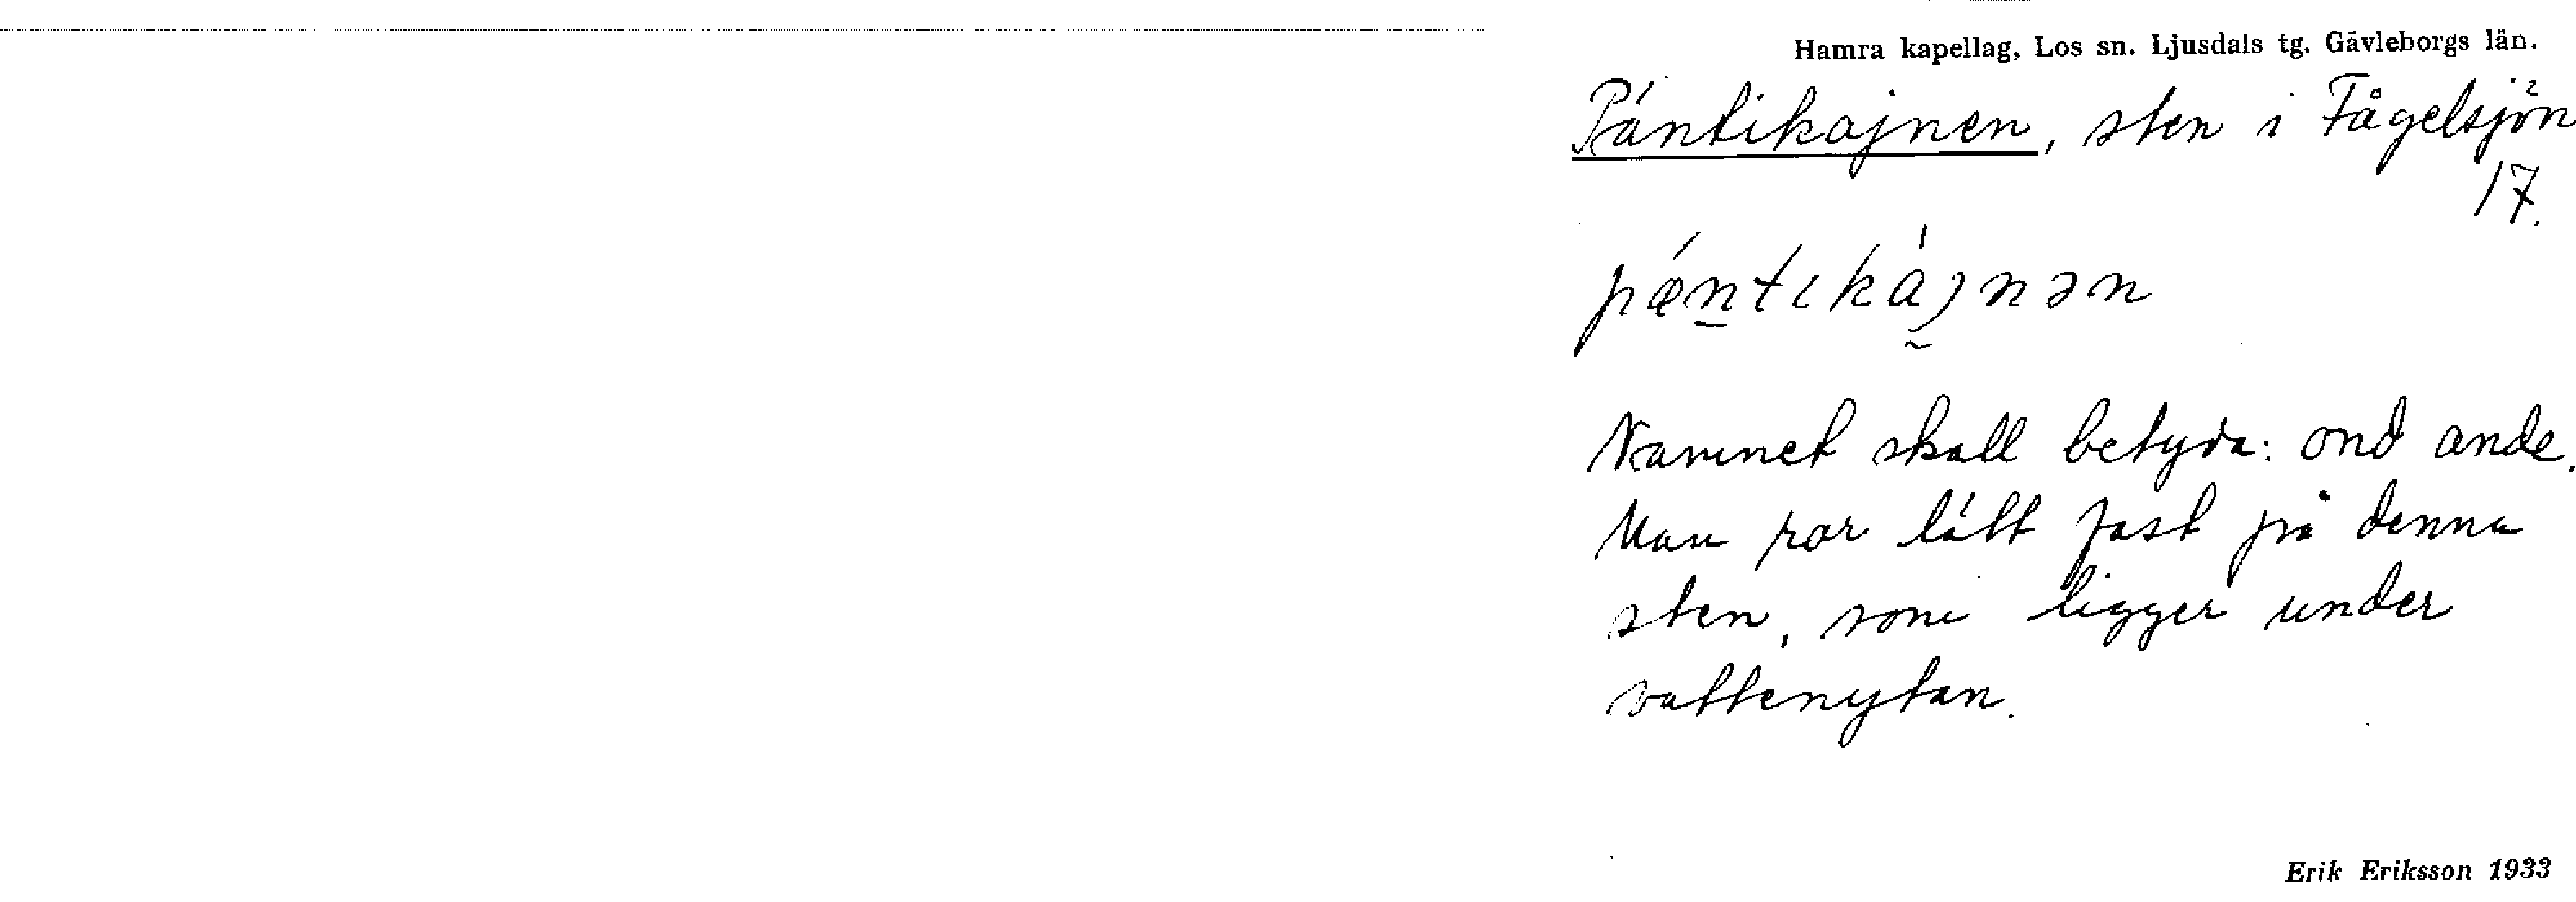 Hamra kapellag, Los sn. Ljusdals tg. Gävleborgs län.
Päntikajnen, sten i Fågelsjön
17.
pǽntikájnən
Namnet skall betyda: ond ande.
Man ror lätt fast på denna
sten, som ligger under
vattenytan.
Erik Eriksson 1933